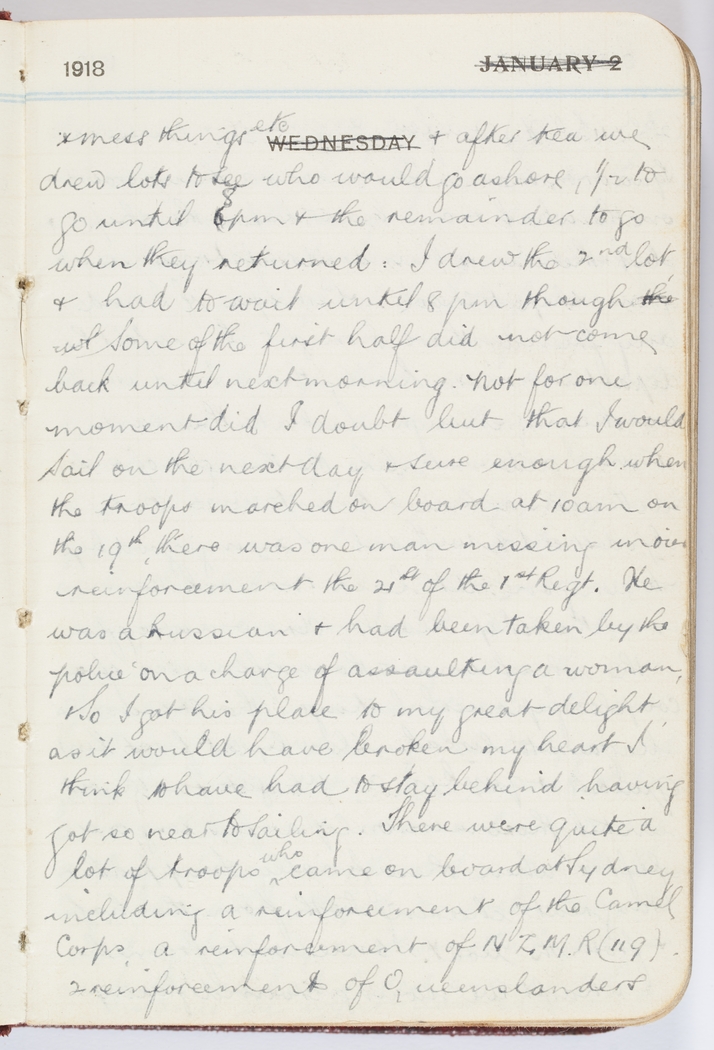 1918 JANUARY 2
WEDNESDAY
& mess things etc & after tea we
drew lots to see who would go ashore, 1/2 to
go until 8pm & the remainder to go
when they returned : I drew the 2nd lot,
& had to wait until 8 pm though the
some of the first half did not come
back until next morning. Not for one
moment did I doubt but that I would
sail on the next day & sure enough when
the troops marched on board at 10am on
the 19th, there was one man missing in our
reinforcement the 21st of the 1st Regt. He
was a Russian & had been taken by the
police on a charge of assaulting a woman,
& So I got his place to my great delight,
as it would have broken my heart I
think to have had to stay behind having
got so near to sailing. There were quite a
lot of troops who came on board at Sydney
including a reinforcement of the Camel
Corps, a reinforcement of N.Z.M.R (119).
2 reinforcements of Queenslanders